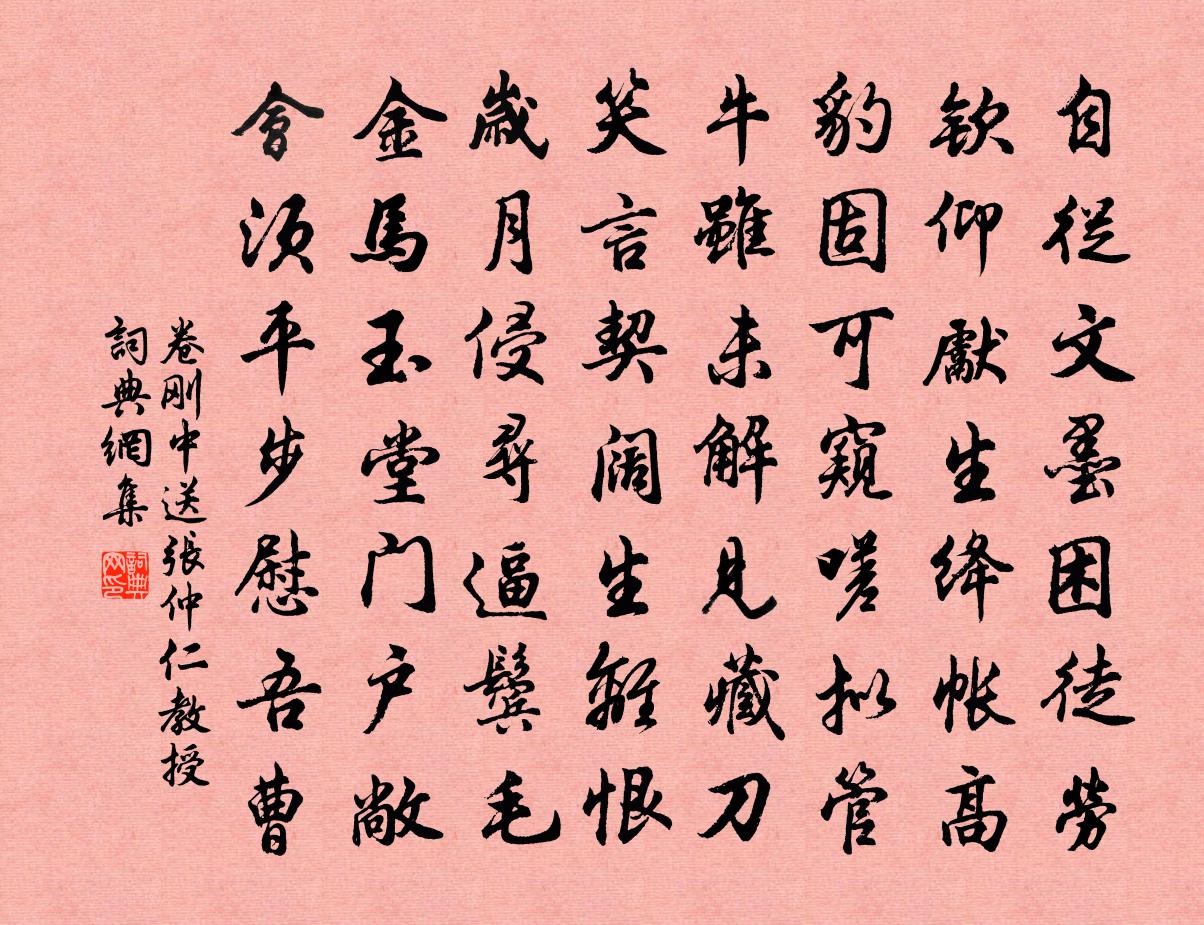 自從文墨困徒勞
欽仰獻生绛帐高
豹固可窺嗟拟管
牛雖未解見藏刀
笑言契阔生離恨
歲月侵尋逼鬓毛
金馬玉堂门户敞
會須平步慰吾曹
卷刚中送張仲仁教授
詞典網集
詞典网印